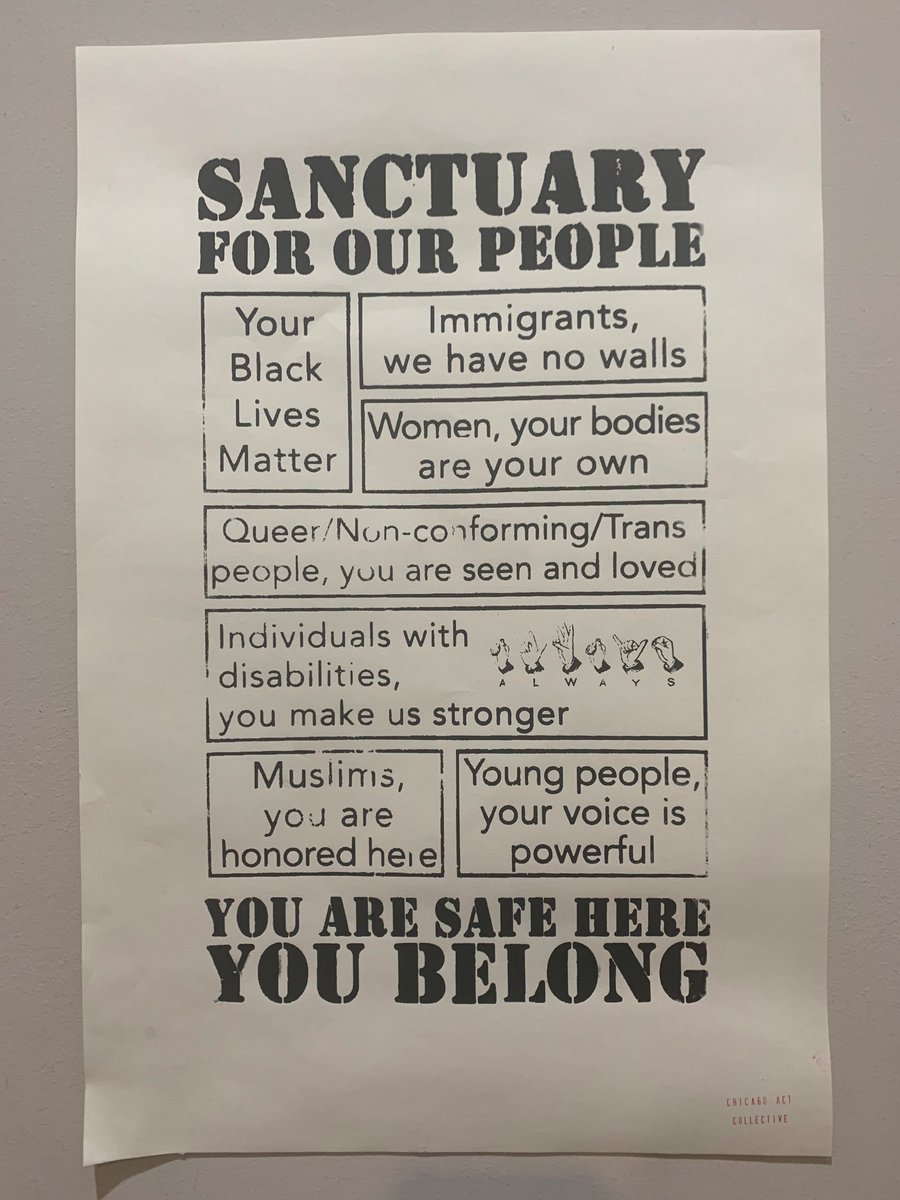 SANCTUARY
FOR OUR PEOPLE
Your
Black
Lives
Matter
Immigrants,
we have no walls
Women, your bodies
are your own
Queer/Non-conforming/Trans
people, you are seen and loved
Individuals with
disabilities,
you make us stronger
A L W A Y S
Muslims,
you are
honored here
Young people,
your voice is
powerful
YOU ARE SAFE HERE
YOU BELONG
CHICAGO ACT
COLLECTIVE